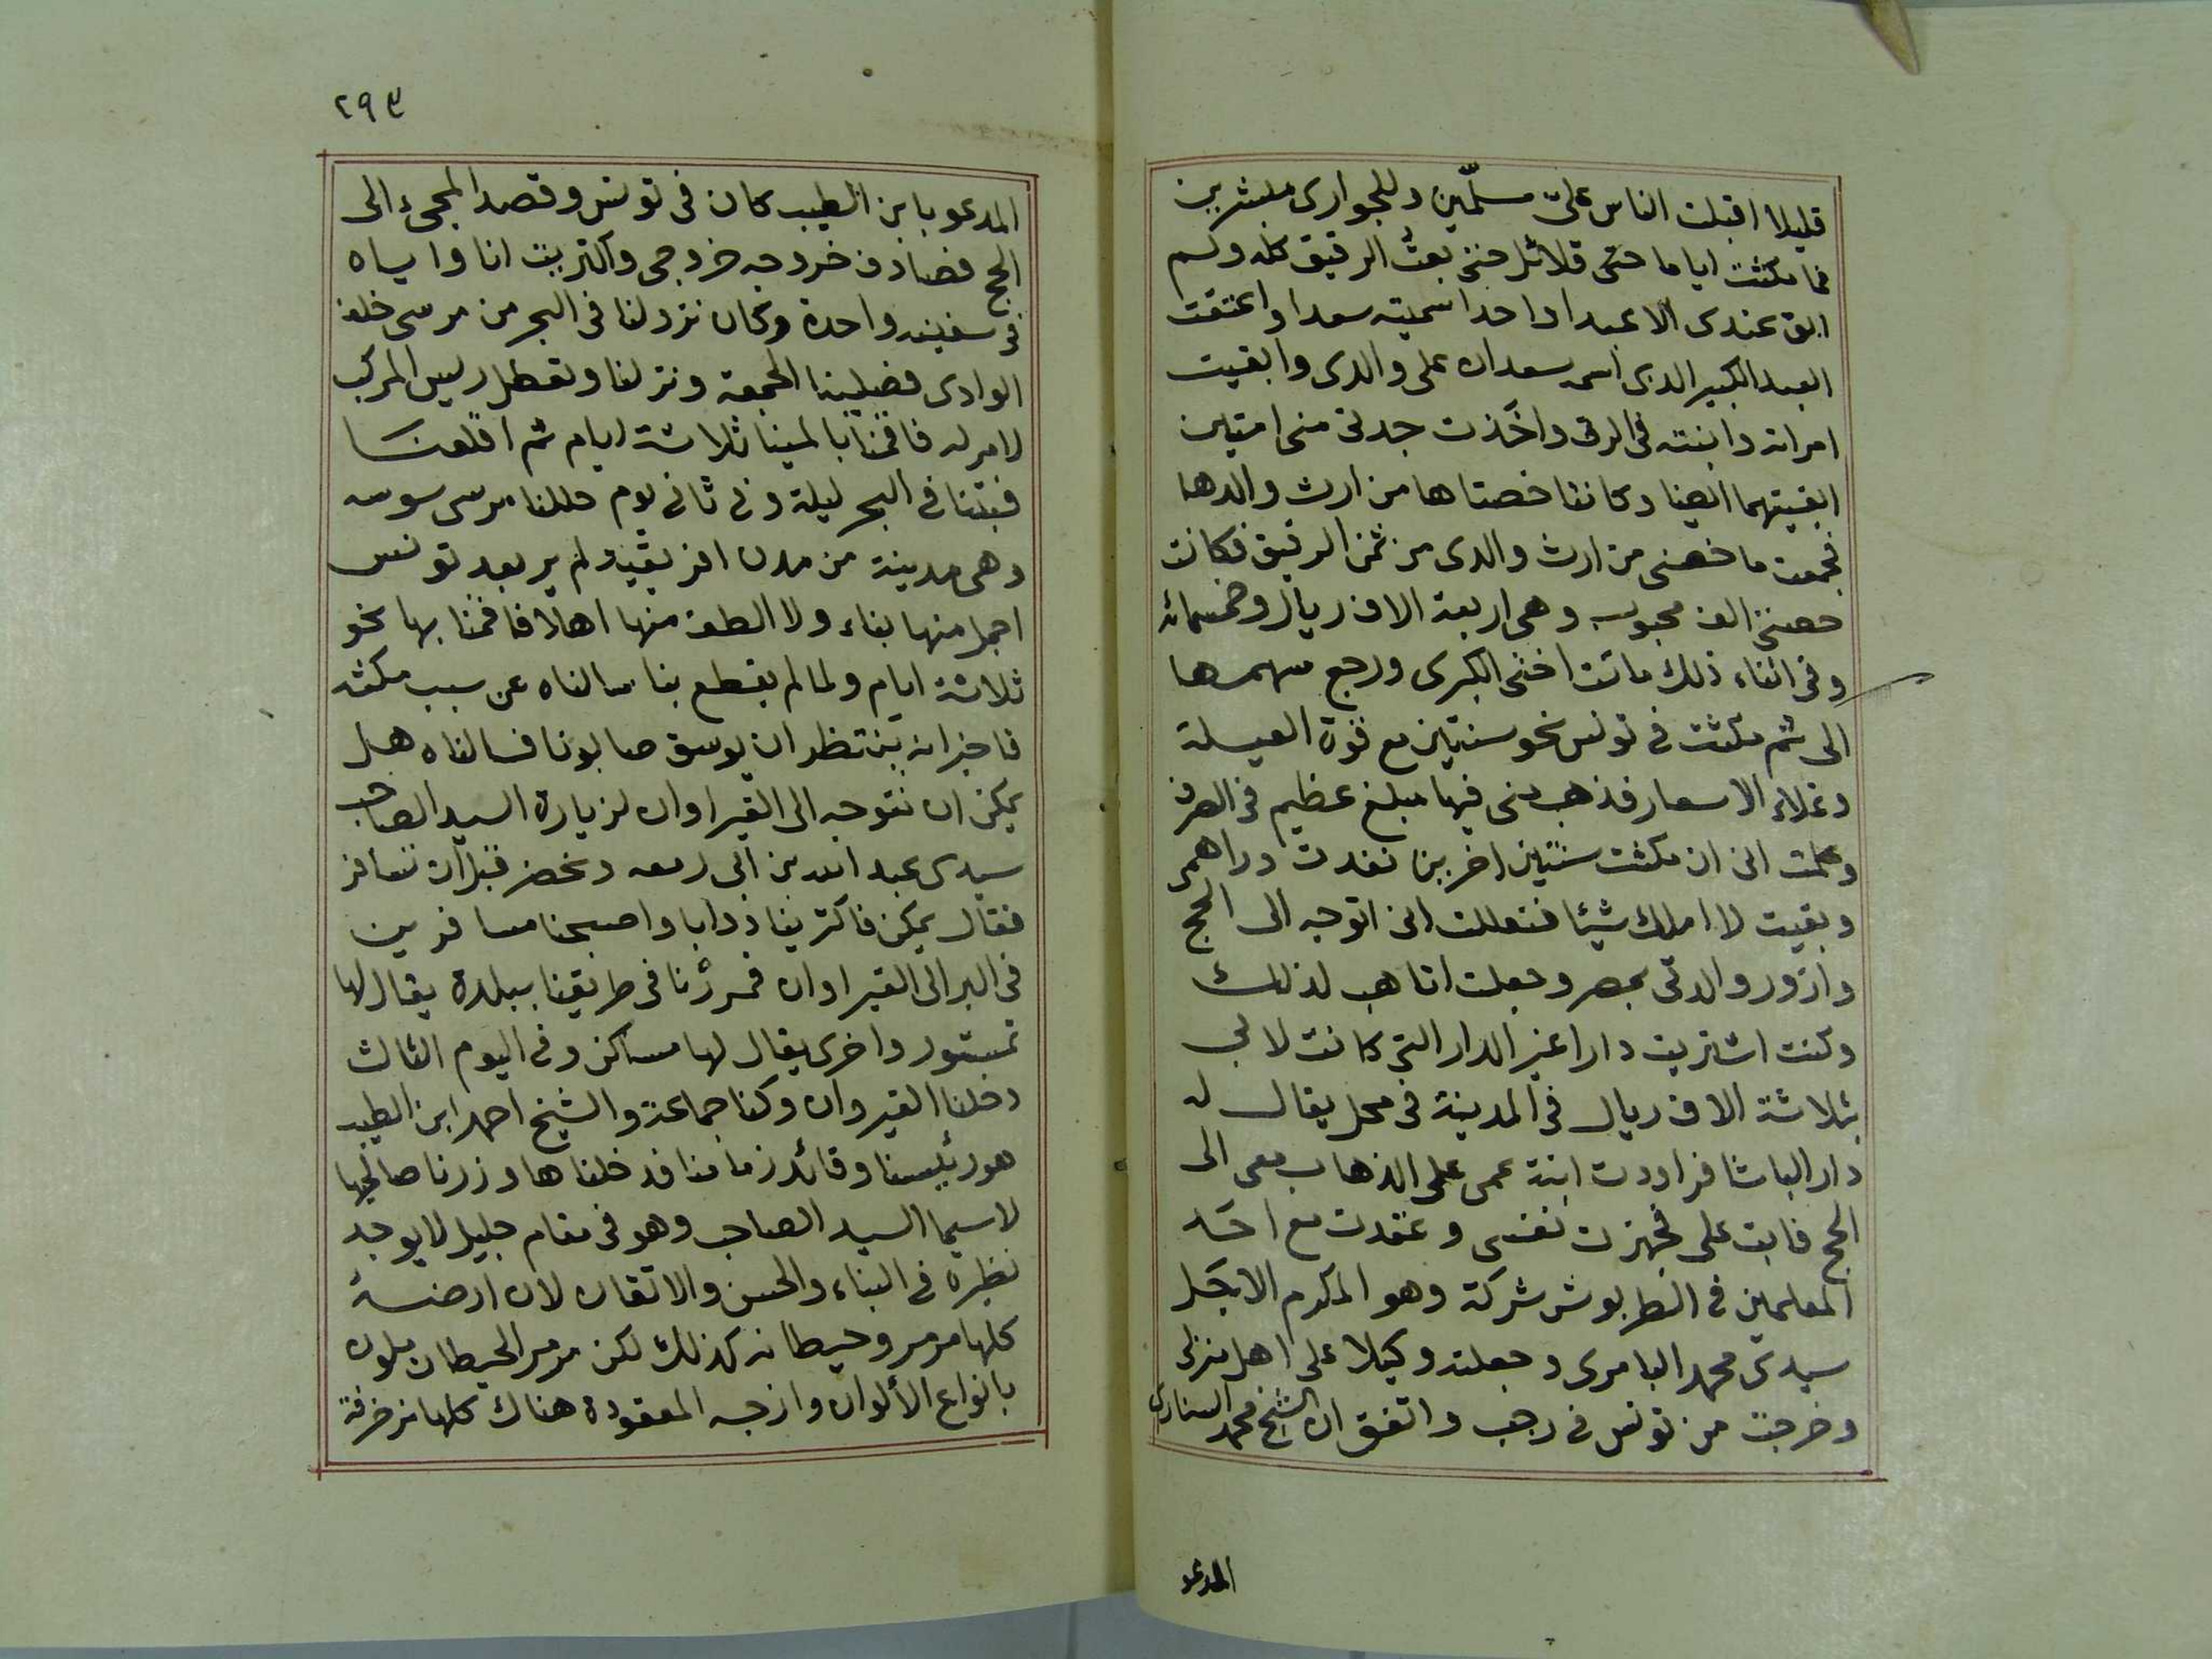 قليلا اقبلت الناس علىّ مسلّمين وللجوارى مبشرين
فما مكثت اياما حتى قلائل حتى بعتُ الرقيق كله ولم
ابق عندى الا عبدا واحدا سميته سعدا واعتقت
العبد الكبير الدى اسمه سعدان على والدى وابقيت
امراته وابنته فى الرق واخَذت جدتى منى امتين
ابقيتهما ايضا وكانتا خصتاها من ارث والدها
فجمعت ما خصنى من ارث والدى من ثمن الرقيق فكانت
حصتى الف محبوب وهى اربعة الاف ريال وخمسمائه
وفى اثناء ذلك ماتت اختى الكبرى ورجع سهمها
الى ثم مكثت فى تونس نحو سنتين مع قوة العيلة
وغلاء الاسعار فذهب منى فيها مبلغ عظيم فى الصرف
وعلمت انى ان مكثت سنتين اخرين نفدت دراهمى
وبقيت لا املك شيئا فتعللت انى اتوجه الى الحج
وازور والدتى بمصر وجعلت اتاهب لذلك
وكنت اشتريت دارا غير الدار التى كانت لابى
بثلاثة الاف ريال فى المدينة فى محل يقال له
دار الباشا فراودت ابنة عمى على الذهاب معى الى
الحج فابت على فجهزت نفسى وعقدت مع احَد
المعلمين فى الطربوش شركة وهو المكرم الاجَل
سيدى محمد البامرى وجعلته وكيلا على اهل منزلى
وخرجت من تونس فى رجب واتفق ان الشيخ محمد السنارى
المدعو
٢٩٣
المدعو بابن الطيب كان فى تونس وقصد المجىء الى
الحج فصادف خروجه خروجى واكتريت انا واياه
فى سفينه واحدة وكان نزولنا فى البحر من مرسى خلف
الوادى فصلينا الجمعة ونزلنا وتعطل ريس المركب
لامر له فاقمنا بالمينا ثلاثة ايام ثم اقلعنَا
فبتنا فى البحر ليلة وفى ثانى يوم حللنا مرسى سوسه
وهى مدينة من مدن افريقية لم ير بعد تونس
اجمل منها بناء ولا الطف منها اهلا فاقمنا بها نحو
ثلاثة ايام ولما لم يقطع بنا سالناه عن سبب مكثه
فاخبر انه ينتظر ان يوسق صابونا فسالناه هل
يمكن ان نتوجه الى القيراوان لزيارة السيد الصاحب
سيدى عبد الله بن ابى زمعه ونحضر قبل ان تسافر
فقال يمكن فاكترينا دوابا واصبحنا مسافرين
فى البر الى القيراوان فمررنا فى طريقنا ببلدة يقال لها
تمستور واخرى يقال لها مساكن وفى اليوم الثالث
دخلنا القيروان وكنا جماعة والشيخ احمد ابن الطيب
هو رئيسنا وقائد زمامنا فدخلناها وزرنا صالحيها
لاسيما السيد الصاحب وهو فى مقام جليل لا يوجد
نظيره فى البناء والحسن والاتقان لان ارضه
كلها مرمر وحيطانه كذلك لكن مرمر الحيطان ملون
بانواع الألوان وازجه المعقودة هناك كلها مزخرفة